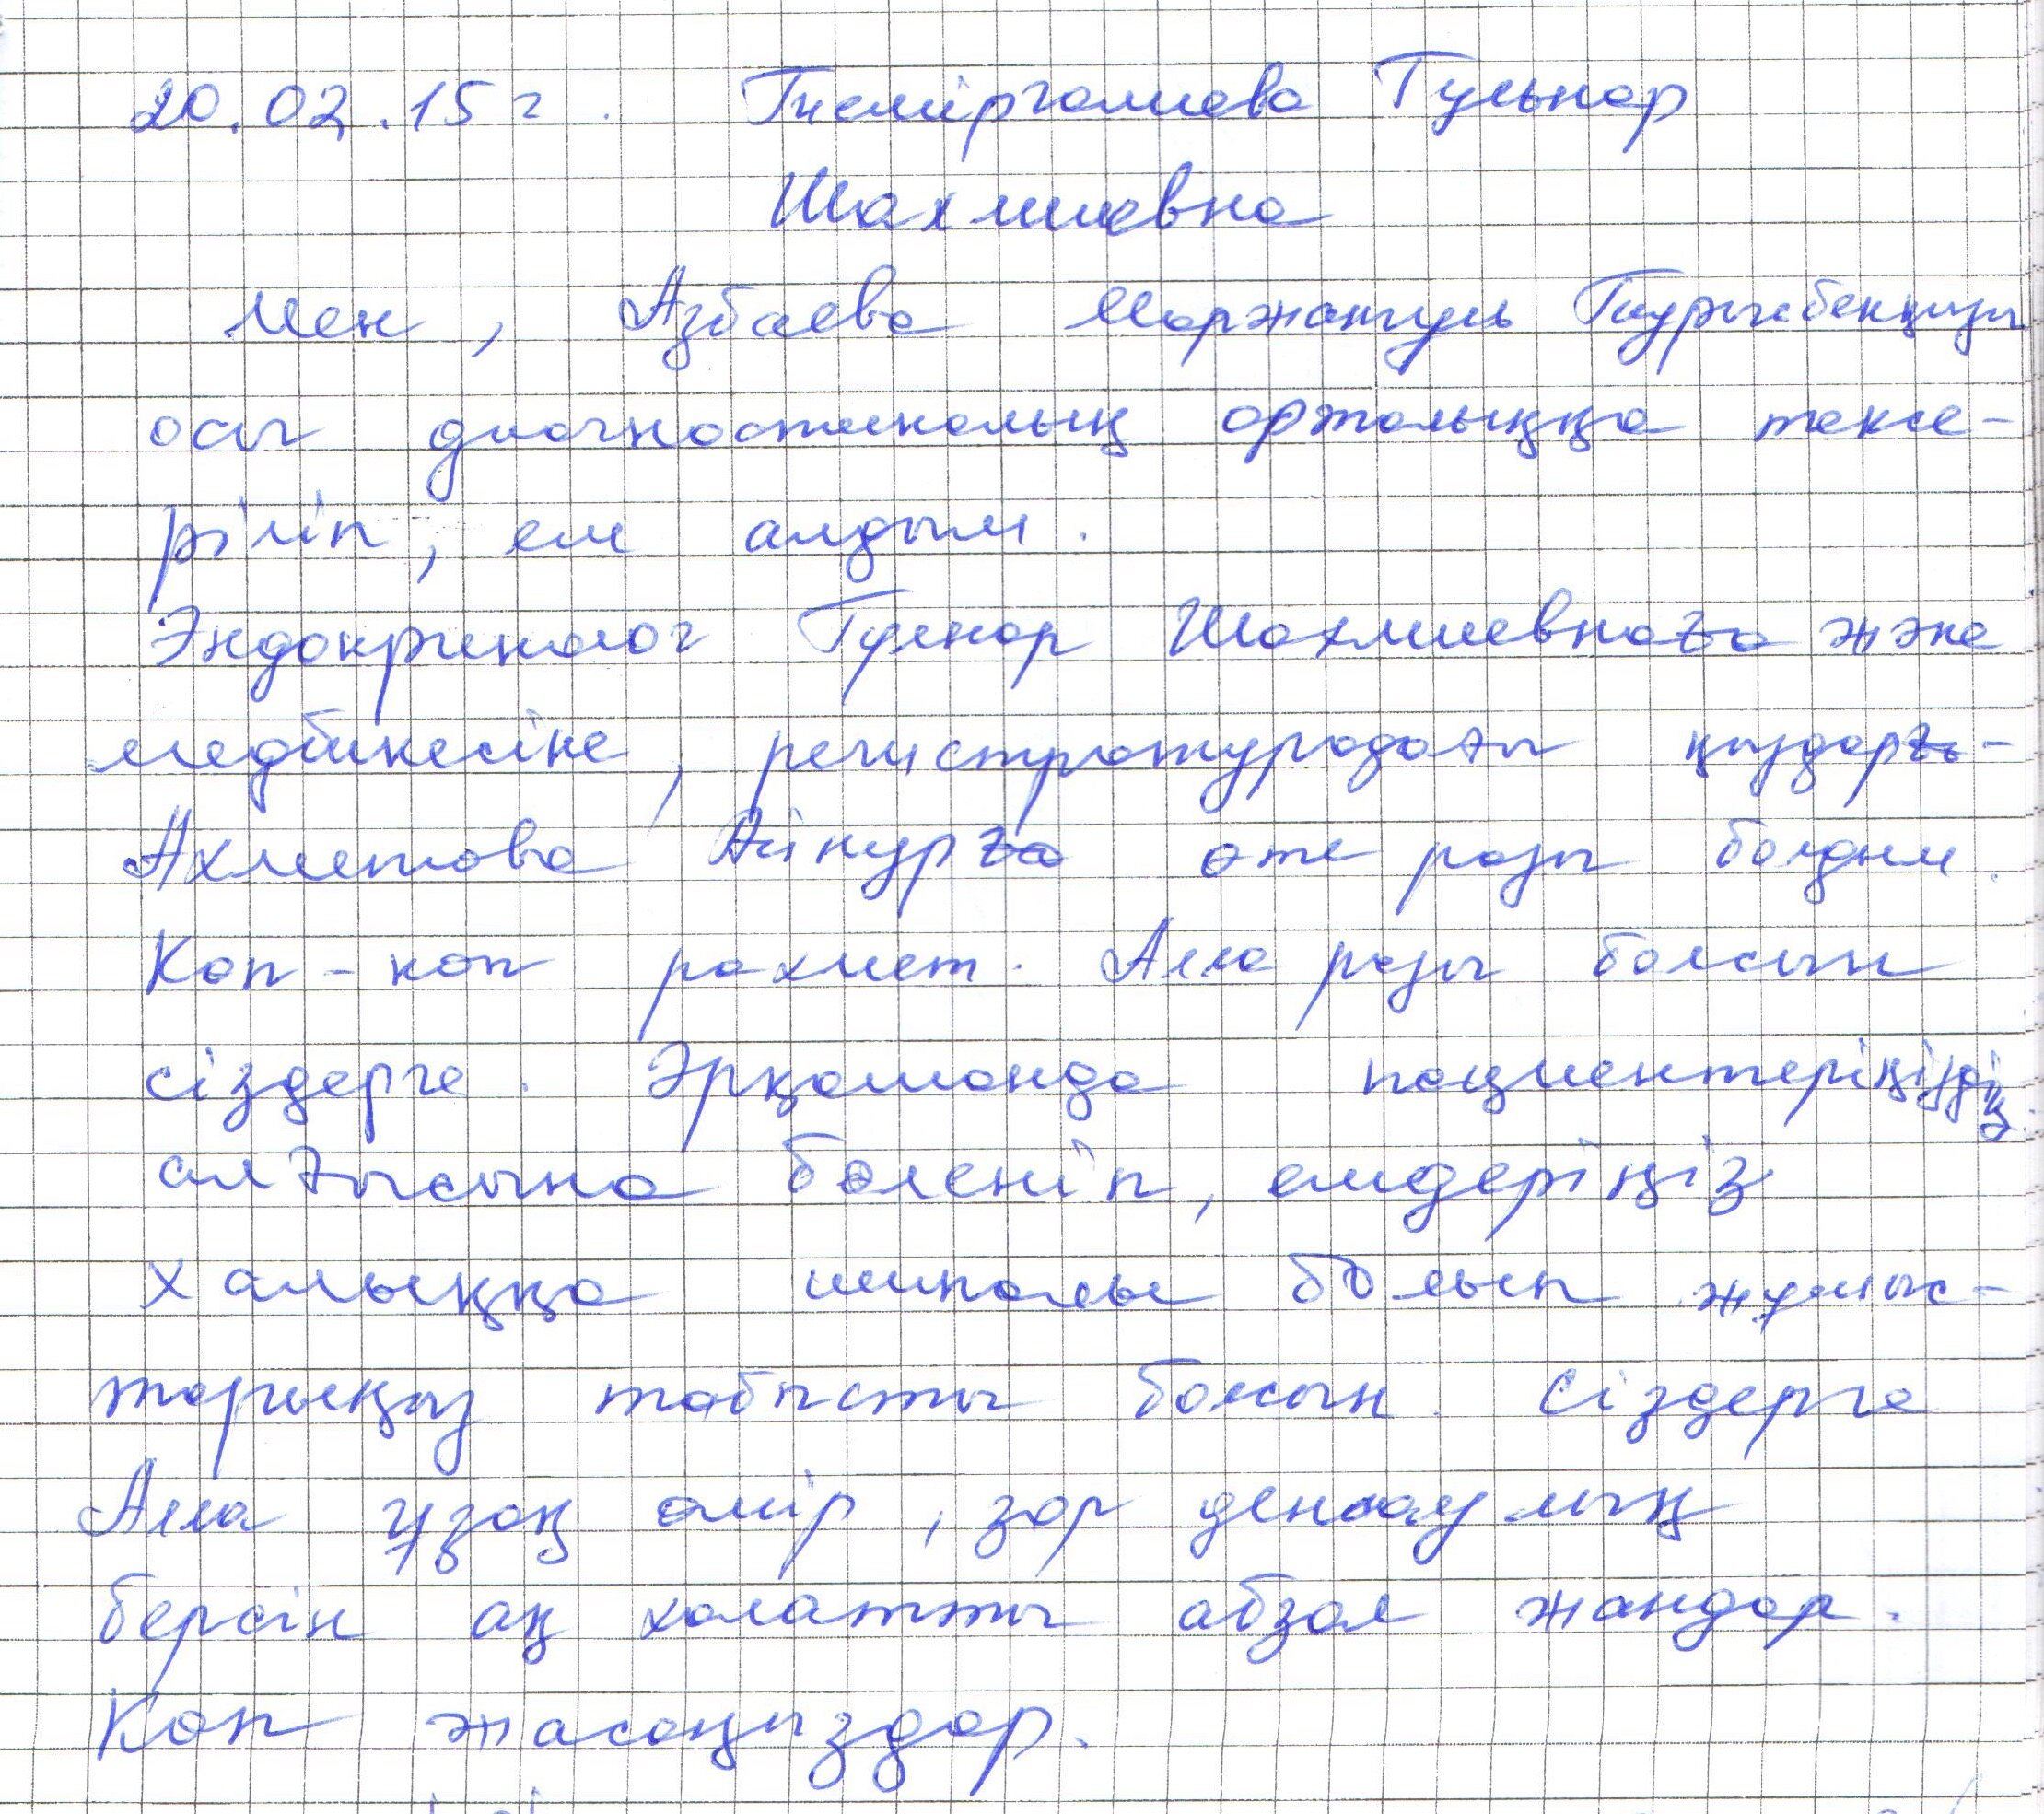 20.02.15 г. Теміргалиева Гульнар
Шахмиевна
Мен, Азбаева Маржангуль Тұрысбекқызы
осы диагностикалық орталыққа тексе-
ріліп, ем алдым.
Эндокринолог Гулнар Шахмиевнаға және
медбикесіне, регистратурадағы қыздарға-
Ахметова Айнурға өте разы болдым.
Көп-көп рахмет. Алла разы болсын
сіздерге. Әрқашанда пациентеріңіздің
алғысына бөленіп, емдеріңіз
халыққа шипалы болып жұмыс-
тарыңыз табысты болсын. Сіздерге
Алла ұзақ өмір, зор денсаулық
берсін ақ халатты абзал жандар.
Көп жасаңыздар.